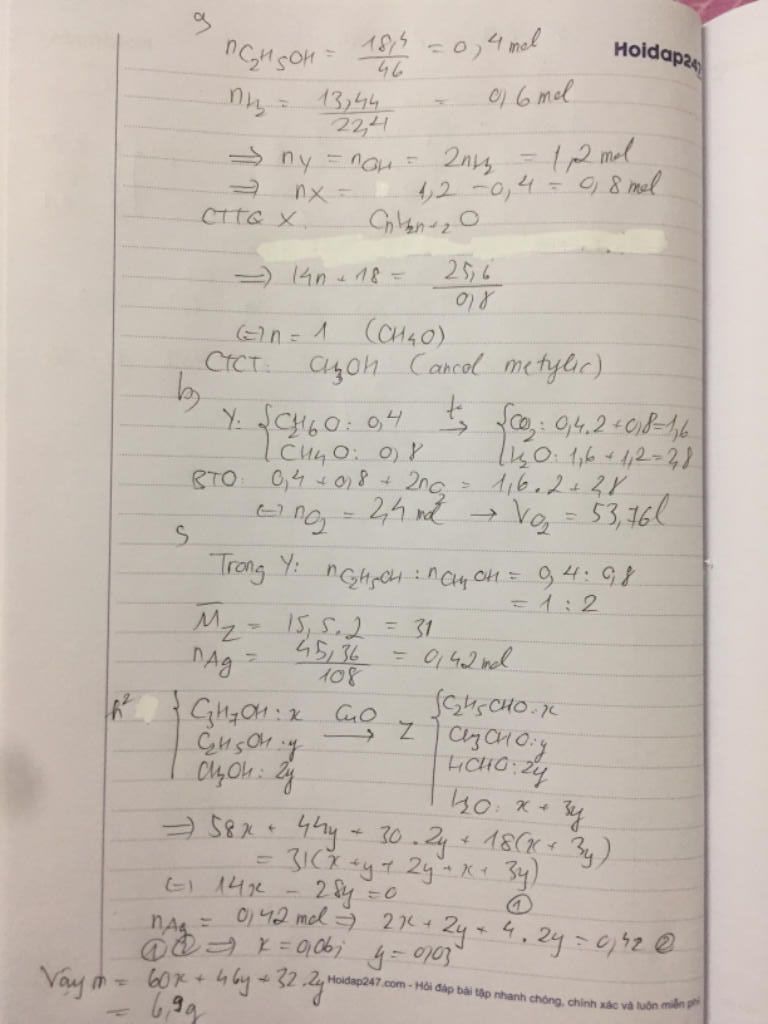 a)
nC2H5OH = 18,4/46 = 0,4 mol
Hoidap247
nH2 = 13,44/22,4 = 0,6 mol
=> nY = nOH = 2nH2 = 1,2 mol
=> nX = 1,2 - 0,4 = 0,8 mol
CTTQ X. CnH2n+2O
=> 14n + 18 = 25,6/0,8
<=> n = 1 (CH4O)
CTCT: CH3OH (ancol metylic)
b)
Y: { C2H6O: 0,4 t° → { CO2: 0,4.2 + 0,8 = 1,6
CH4O: 0,8 H2O: 1,6 + 1,2 = 2,8
BTO: 0,4 + 0,8 + 2nO2 = 1,6.2 + 2,8
<=> nO2 = 2,4 mol → VO2 = 53,76l
Trong Y: nC2H5OH : nCH3OH = 0,4 : 0,8
= 1 : 2
M̄Z = 15,5.2 = 31
nAg = 45,36/108 = 0,42 mol
h² { C3H7OH: x CuO → Z { C2H5CHO: x
C2H5OH: y CH3CHO: y
CH3OH: 2y HCHO: 2y
H2O: x + 3y
=> 58x + 44y + 30.2y + 18(x + 3y)
= 31(x + y + 2y + x + 3y)
<=> 14x - 28y = 0 ①
nAg = 0,42 mol => 2x + 2y + 4.2y = 0,42 ②
① ② => x = 0,06; y = 0,03
Vậy m = 60x + 46y + 32.2y
Hoidap247.com - Hỏi đáp bài tập nhanh chóng, chính xác và luôn miễn phí
= 6,9g